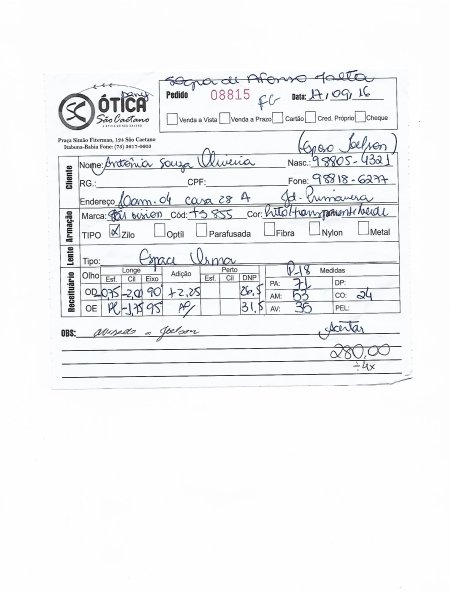 Sogra de Afonso
ÓTICA
São Caetano
Pedido 08815 Data: 17, 09, 16
Venda a Vista Venda a Prazo Cartão Cred. Próprio Cheque
Praça Simão Fiterman, 124 São Caetano
Itabuna-Bahia Fone: (73) 3617-0603
(Esposo Joelson)
Cliente
Nome: Antônia Souza Oliveira Nasc.: 98805-4321
RG.: CPF: Fone: 98818-6277
Endereço: Cam. 04 casa 28 A Jd. Primavera
Armação
Marca: vision Cód: T3 855 Cor: preto/transparente/verde
TIPO X Zilo Optil Parafusada Fibra Nylon Metal
Lente
Tipo: Espace Orma
Receituário
Olho Longe Adição Perto DNP P-18 Medidas
Esf. Cil Eixo Esf. Cil
OD -0,75 -2,00 90° +2,25 26,5 PA: 71 DP:
AM: 53 CO: 24
OE PL -1,75 95 AP/ 31,5 AV: 35 PEL:
OBS: avisado a Joelson Acertar
280,00
÷4x